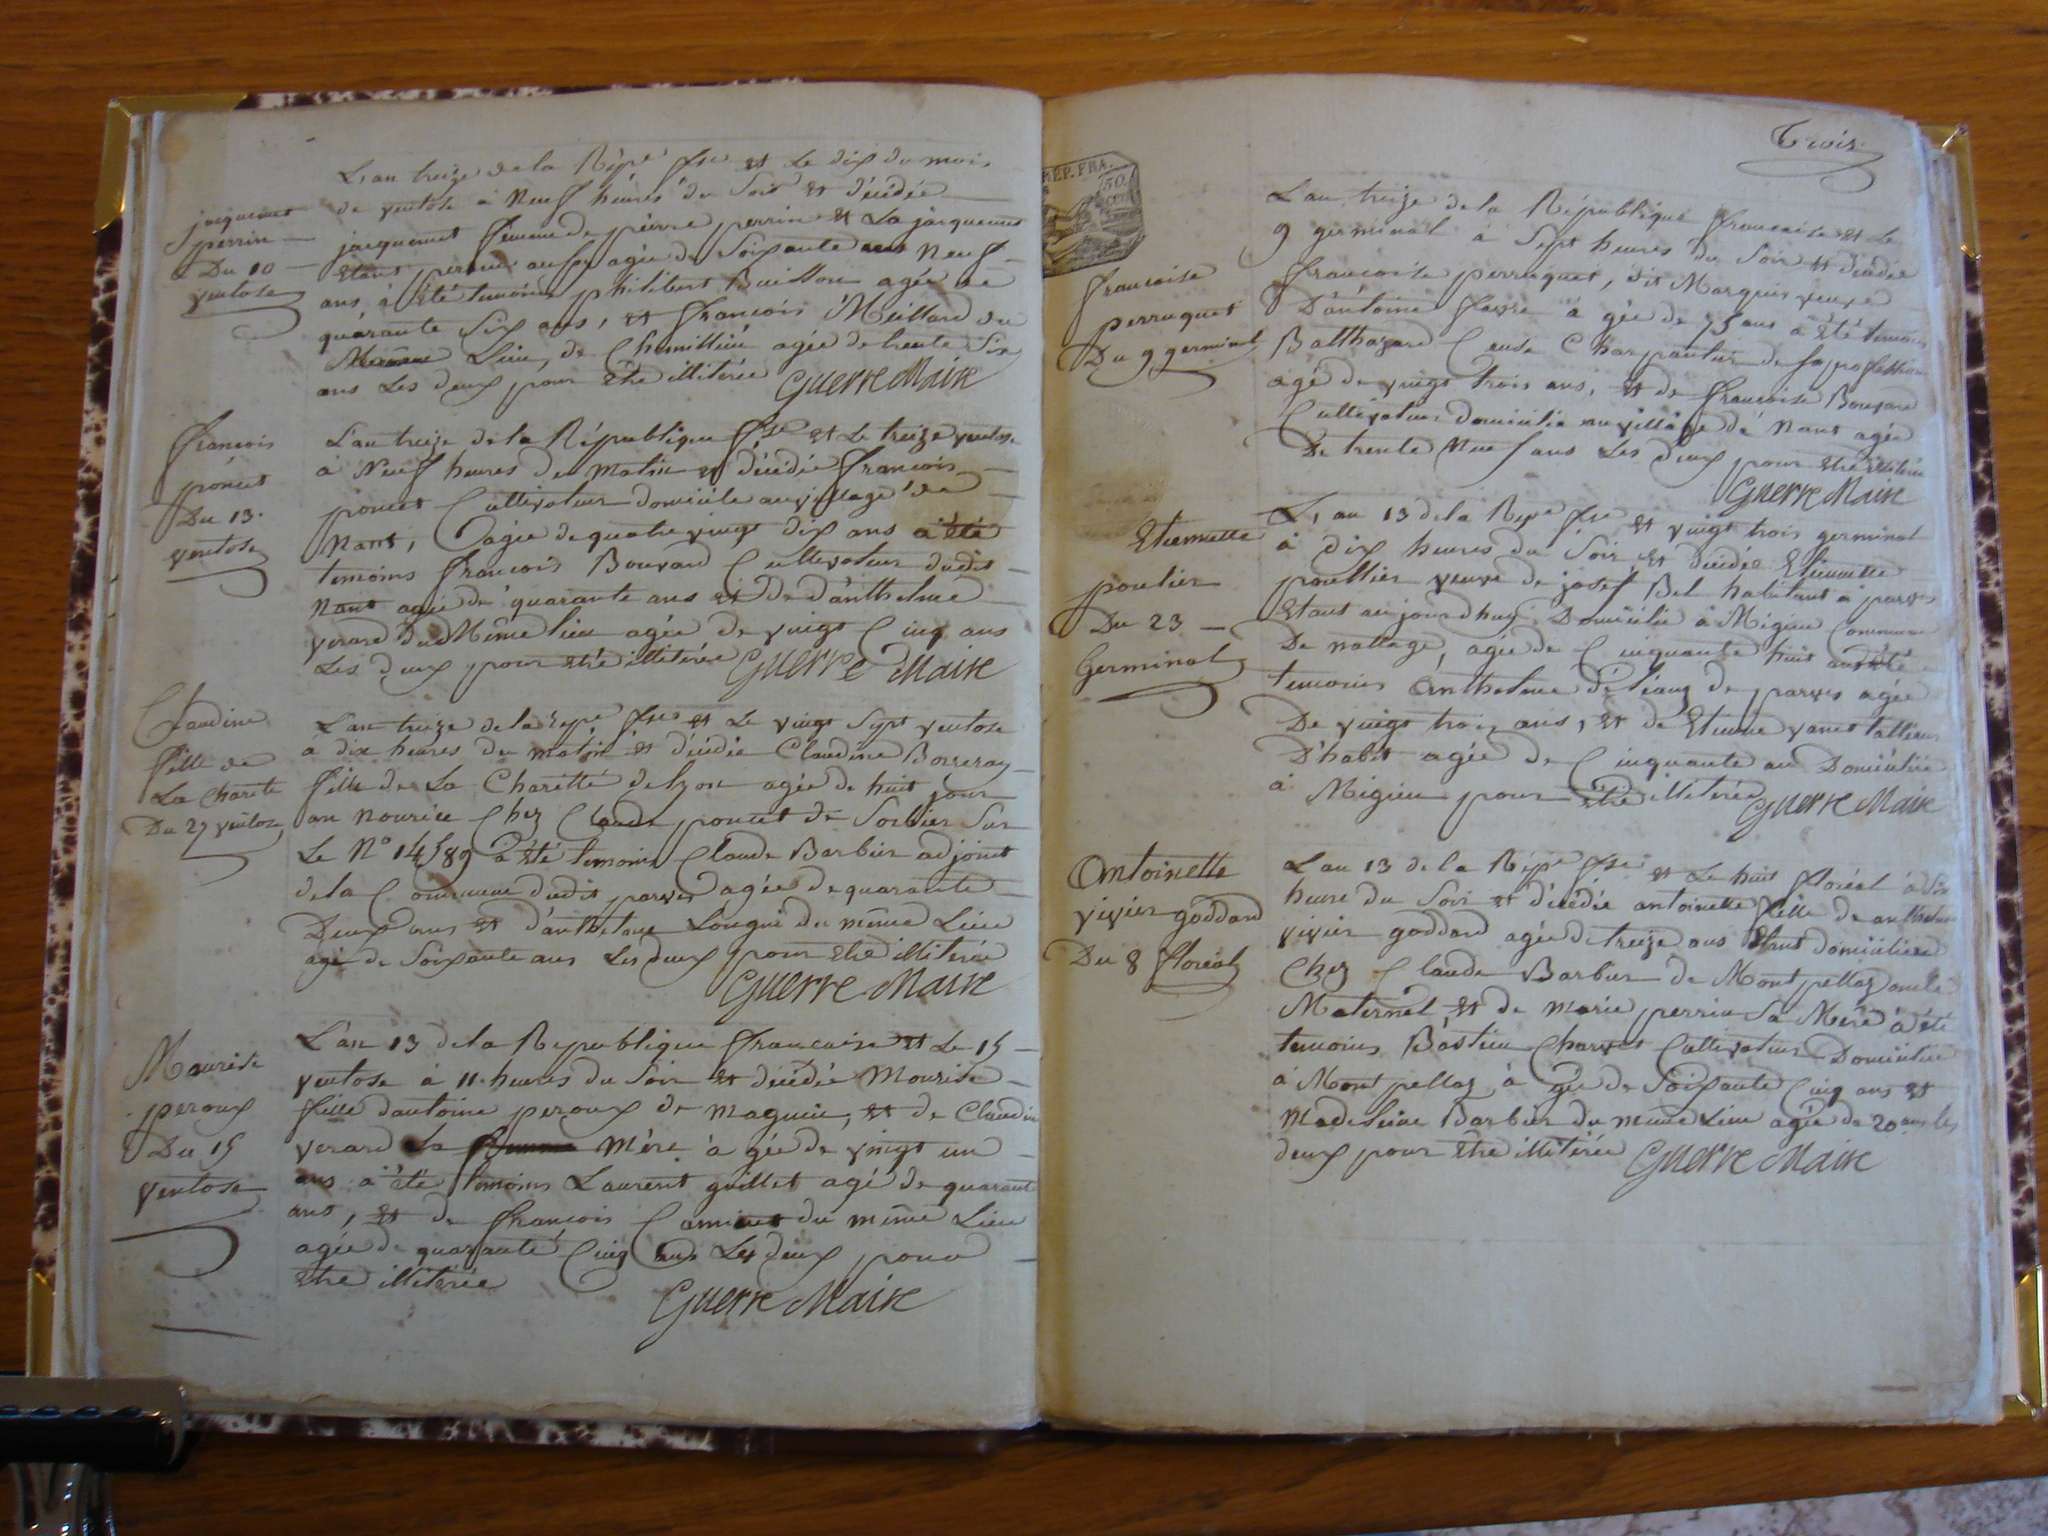 jacquemet
perrin
Du 10
ventose
L'an treize de la Répe fse et Le dix du mois
de ventose à Neuf heures du Soir est décédée
jacquemet femme de pierre perrin et La jacquemet
Etant perrin aussy agée de Soixante Neuf
ans, à été temoins philibert Buisson agée de
quarante Six ans, et françois Meillard du
Lieu, de Chemillieu agée de trente Six
ans Les deux pour être illiterée Guerre Maire
françois
poncet
Du 13.
ventose
L'an treize de la République fse et Le treize ventose
à Neuf heures du matin est décédée françois
poncet Cultivateur domicile au village de
Nant, agée de quatre vingt dix ans a été
temoins françois Bouvard Cultivateur dudit
Nant agée de quarante ans et de d'anthelme
verard du Même lieu agée de vingt Cinq ans
Les deux pour etre illiterée Guerre Maire
Claudine
fille de
La Charité
Du 27 ventose
L'an treize de la Repe fse et Le vingt Sept ventose
à dix heures du matin est décédée Claudine Borreray
fille de La Charitté de lyon agée de huit jour
an nourice Chez Claude poncet de Sorbier Sur
Le No 14589 a été temoins Claude Barbier adjoint
de la Commune dudit parves agée de quarante
Deux ans et d'anthelme Longin du même Lieu
agé de Soixante ans Les deux pour etre illiterée
Guerre Maire
Mourise
peroux
Du 15
ventose
L'an 13 de la Republique francaise et Le 15
ventose à 11 heures du Soir est décédée Mourise
fille dantoine peroux de magnieu, et de Claudine
verard La femme Mère à gée de vingt un
ans à été temoins Laurent guillet agé de quarant
ans, et de françois Caminet du même Lieu
agée de quarante Cinq ans Les deux pour
etre illiterée
Guerre Maire
Trois.
REP. FRA.
50.
francoise
perruquet
Du 9 germinal
L'an treize de la République francaise et Le
9 germinal à Sept heures du Soir est décédée
francoise perruquet, dit Marquis veuve
D'antoine favre à gée de 75 ans à été temoins
Balthazard Ceuse Charpantier de sa profession
agé de vingt trois ans, et de francoise Bouvard
Cultivateur domicilie au village de Nant agée
De trente Neuf ans Les deux pour etre illiterée
Guerre Maire
Etiennette
poulier
Du 23
Germinal
L'an 13 de la Repe fse et vingt trois germinal
à dix heures du Soir est décédée Etiennette
poullier veuve de josef Bel habitant à parves
Etant aujourdhuy Domicilie à Migieu Commune
De nattage, agée de Cinquante huit ans à été
temoins Anthelme de parves agée
De vingt trois ans, et de Etienne vanet tallieur
D'habit agée de Cinquante an Domicilié
à Migieu pour etre illiterée Guerre Maire
Antoinette
vivier goddard
Du 8 floréal
L'an 13 de la Répe fse et Le huit floréal à Six
heure du Soir est décédée antoinette fille de anthelme
vivier goddard agée de treize ans Etant domiciliée
Chez Claude Barbier de Montpellaz oncle
Maternel et de marie perrin Sa Mère à été
temoins Bastien Charvet Cultivateur Domicilié
à Montpellaz à gée de Soixante Cinq ans et
Madeleine Barbier du même Lieu agée de 20 ans les
deux pour etre illiterée Guerre Maire